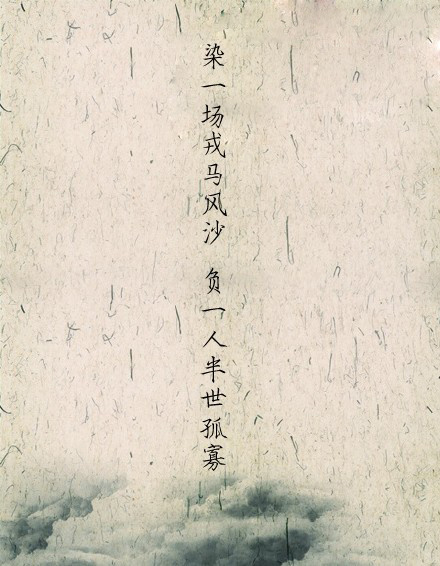 染一场戎马风沙 负一人半世孤寡